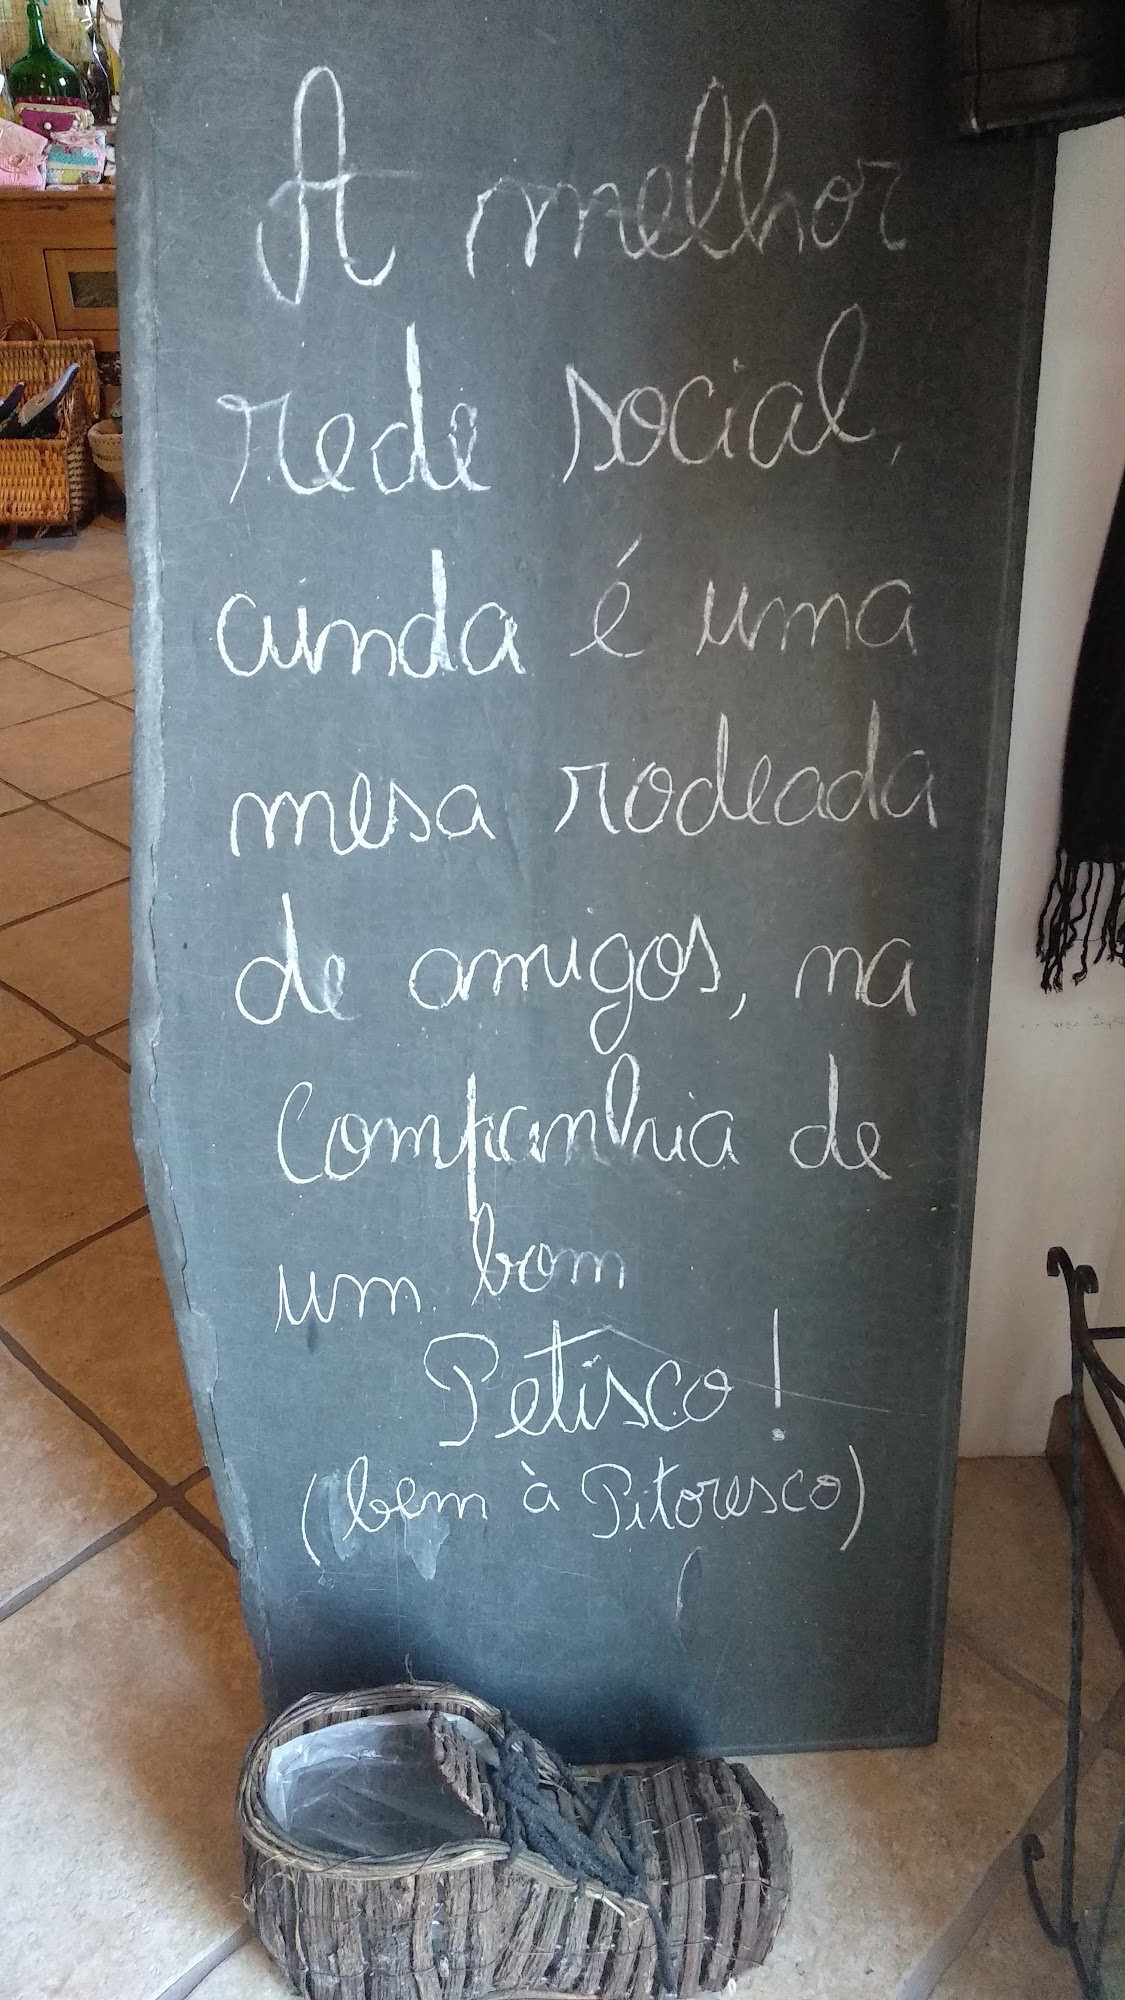 A melhor
rede social,
ainda é uma
mesa rodeada
de amigos, na
Companhia de
um bom
Petisco!
(bem à Pitoresco)